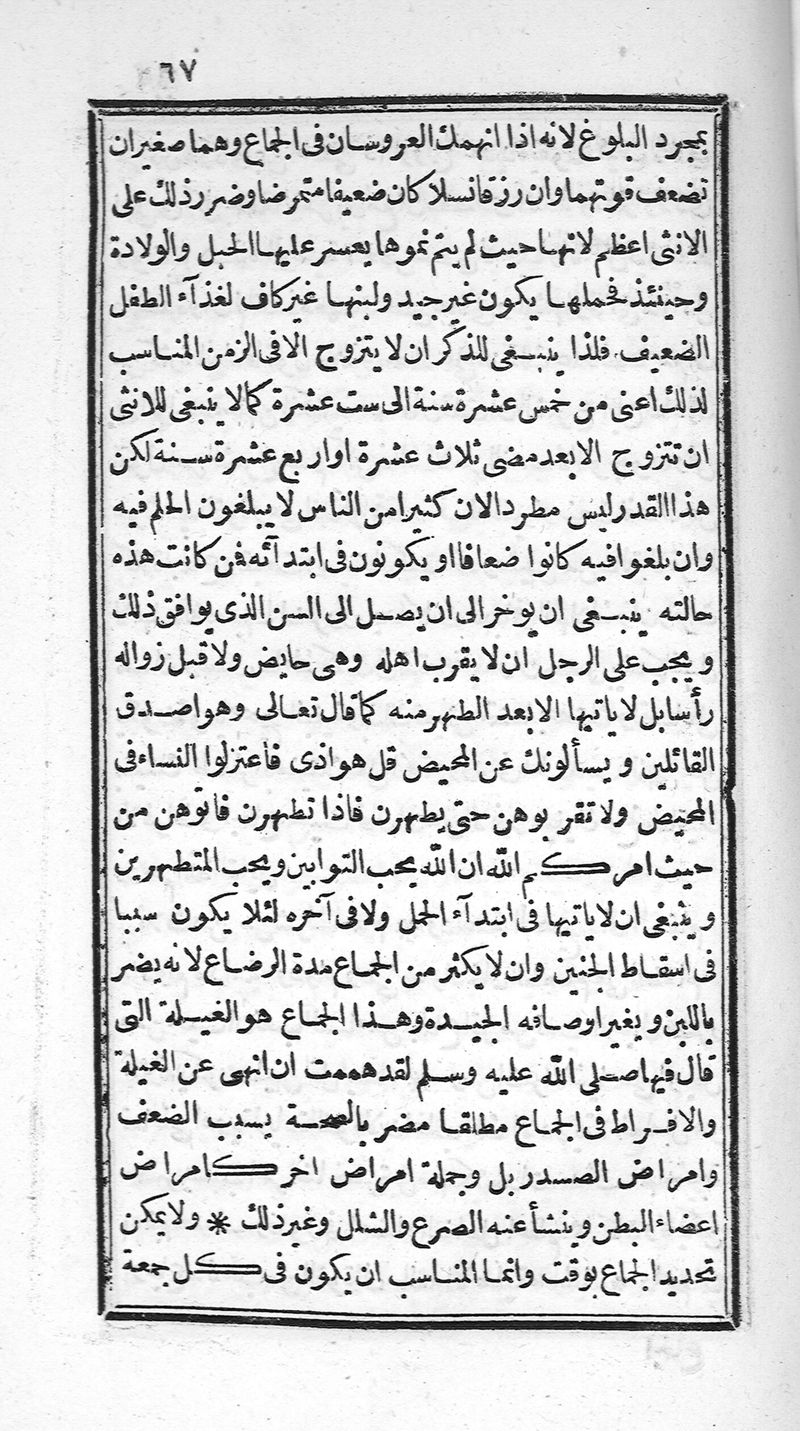 ٦٧
بمجرد البلوغ لانه اذا انهمك العروسان فى الجماع وهما صغيران
تضعف قوتهما وان رزقا نسلا كان ضعيفا متمرضا وضرر ذلك على
الانثى اعظم لانها حيث لم يتم نموها يعسر عليها الحبل والولادة
وحينئذ فحملها يكون غير جيد ولبنها غير كاف لغذآء الطفل
الضعيف. فلذا ينبغى للذكر ان لا يتزوج الا فى الزمن المناسب
لذلك اعنى من خمس عشرة سنة الى ست عشرة كما لا ينبغى للانثى
ان تتزوج الا بعد مضى ثلاث عشرة او اربع عشرة سنة لكن
هذا القدر ليس مطردا لان كثيرا من الناس لا يبلغون الحلم فيه
وان بلغوا فيه كانوا ضعافا او يكونون فى ابتدآئه فمن كانت هذه
حالته ينبغى ان يوخر الى ان يصل الى السن الذى يوافق ذلك
ويجب على الرجل ان لا يقرب اهله وهى حايض ولا قبل زواله
رأسا بل لا ياتيها الا بعد الطهر منه كما قال تعالى وهو اصدق
القائلين ويسألونك عن المحيض قل هو اذى فاعتزلوا النساء فى
المحيض ولا تقربوهن حتى يطهرن فاذا تطهرن فاتوهن من
حيث امركم الله ان الله يحب التوابين ويحب المتطهرين
وينبغى ان لا ياتيها فى ابتدآء الحمل ولا فى آخره لئلا يكون سببا
فى اسقاط الجنين وان لا يكثر من الجماع مدة الرضاع لانه يضر
باللبن ويغير اوصافه الجيدة وهذا الجماع هو الغيلة التى
قال فيها صلى الله عليه وسلم لقد هممت ان انهى عن الغيلة
والافراط فى الجماع مطلقا مضر بالصحة يسبب الضعف
وامراض الصدر بل وجملة امراض اخر كامراض
اعضاء البطن وينشأ عنه الصرع والشلل وغير ذلك * ولا يمكن
تحديد الجماع بوقت وانما المناسب ان يكون فى كل جمعة